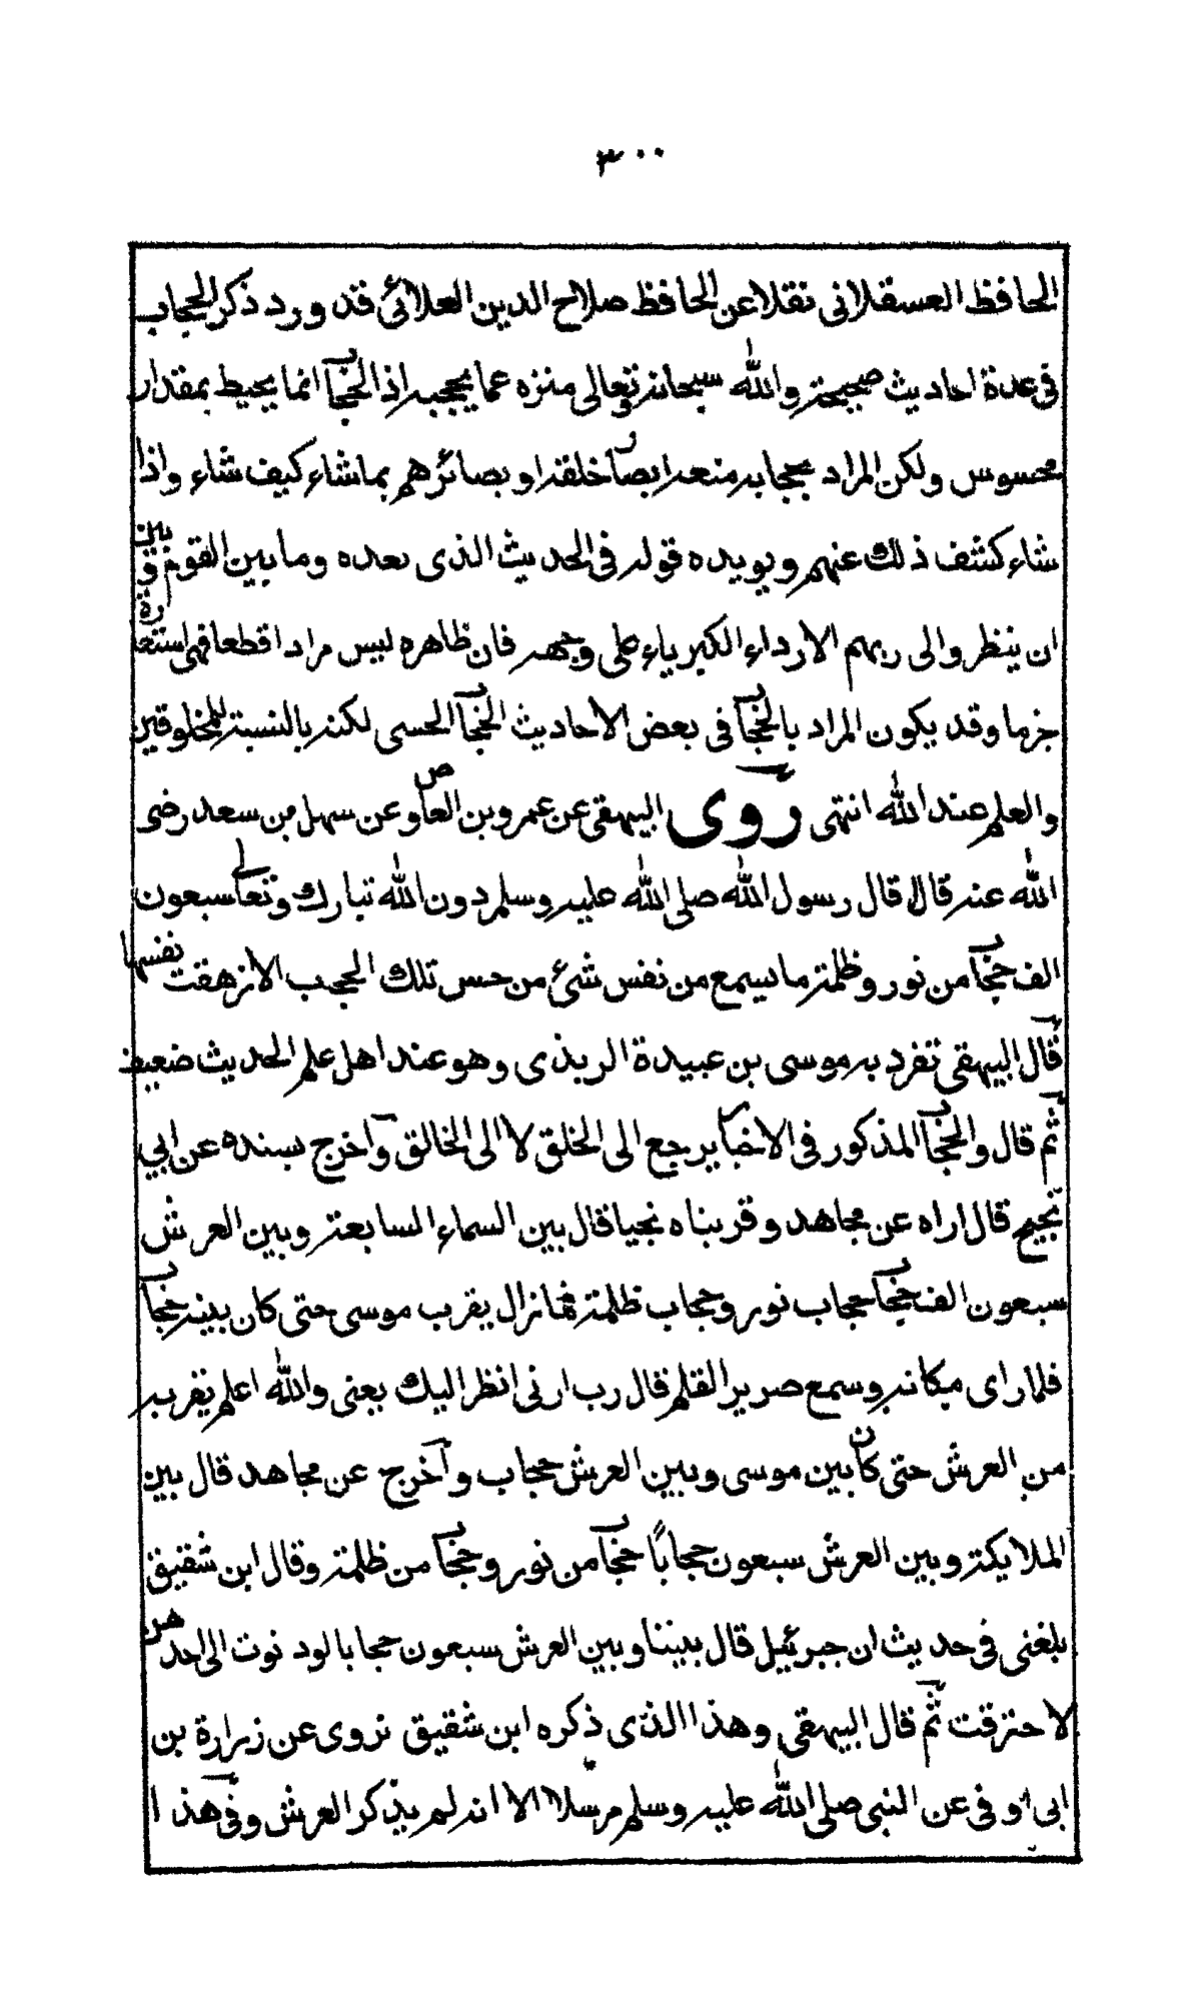 ٣٠٠
الحافظ العسقلانى نقلا عن الحافظ صلاح الدين العلائي قد ورد ذكر الحجاب
فى عدة احاديث صحيحة والله سبحانه وتعالى منزه عما يحجبه اذ الحجاب انما يحيط بمقدار
محسوس ولكن المراد بحجابه منعه ابصار خلقه او بصائرهم بما شاء كيف شاء واذا
شاء كشف ذلك عنهم ويويده قوله فى الحديث الذى بعده وما بين القوم وبين
ان ينظروا الى ربهم الا رداء الكبرياء على وجهه فان ظاهره ليس مرادا قطعا فهى استعارة
جزما وقد يكون المراد بالحجاب فى بعض الاحاديث الحجاب الحسى لكنه بالنسبة للمخلوقين
والعلم عند الله انتهى روى البيهقى عن عمرو بن العاص وعن سهل بن سعد رضى
الله عنه قالا قال رسول الله صلى الله عليه وسلم دون الله تبارك وتعالى سبعون
الف حجاب من نور وظلمة ما يسمع من نفس شئ من حس تلك الحجب الا زهقت نفسها
قال البيهقى تفرد به موسى بن عبيدة الربذى وهو عند اهل علم الحديث ضعيف
ثم قال والحجاب المذكور فى الاخبار يرجع الى الخلق لا الى الخالق واخرج بسنده عن ابي
نجيح قال اراه عن مجاهد وقربناه نجيا قال بين السماء السابعة وبين العرش
سبعون الف حجاب حجاب نور وحجاب ظلمة فما زال يقرب موسى حتى كان بينه حجاب
فلما راى مكانه وسمع صرير القلم قال رب ارنى انظر اليك يعنى والله اعلم يقربه
من العرش حتى كان بين موسى وبين العرش حجاب واخرج عن مجاهد قال بين
الملايكة وبين العرش سبعون حجاباً حجاب من نور وحجاب من ظلمة وقال ابن شقيق
بلغنى فى حديث ان جبرئيل قال بيننا وبين العرش سبعون حجابا لو دنوت الى احدهن
لاحترقت ثم قال البيهقى وهذا الذى ذكره ابن شقيق نروى عن زرارة بن
ابى اوفى عن النبى صلى الله عليه وسلم مرسلا الا انه لم يذكر العرش وفى هذا ا